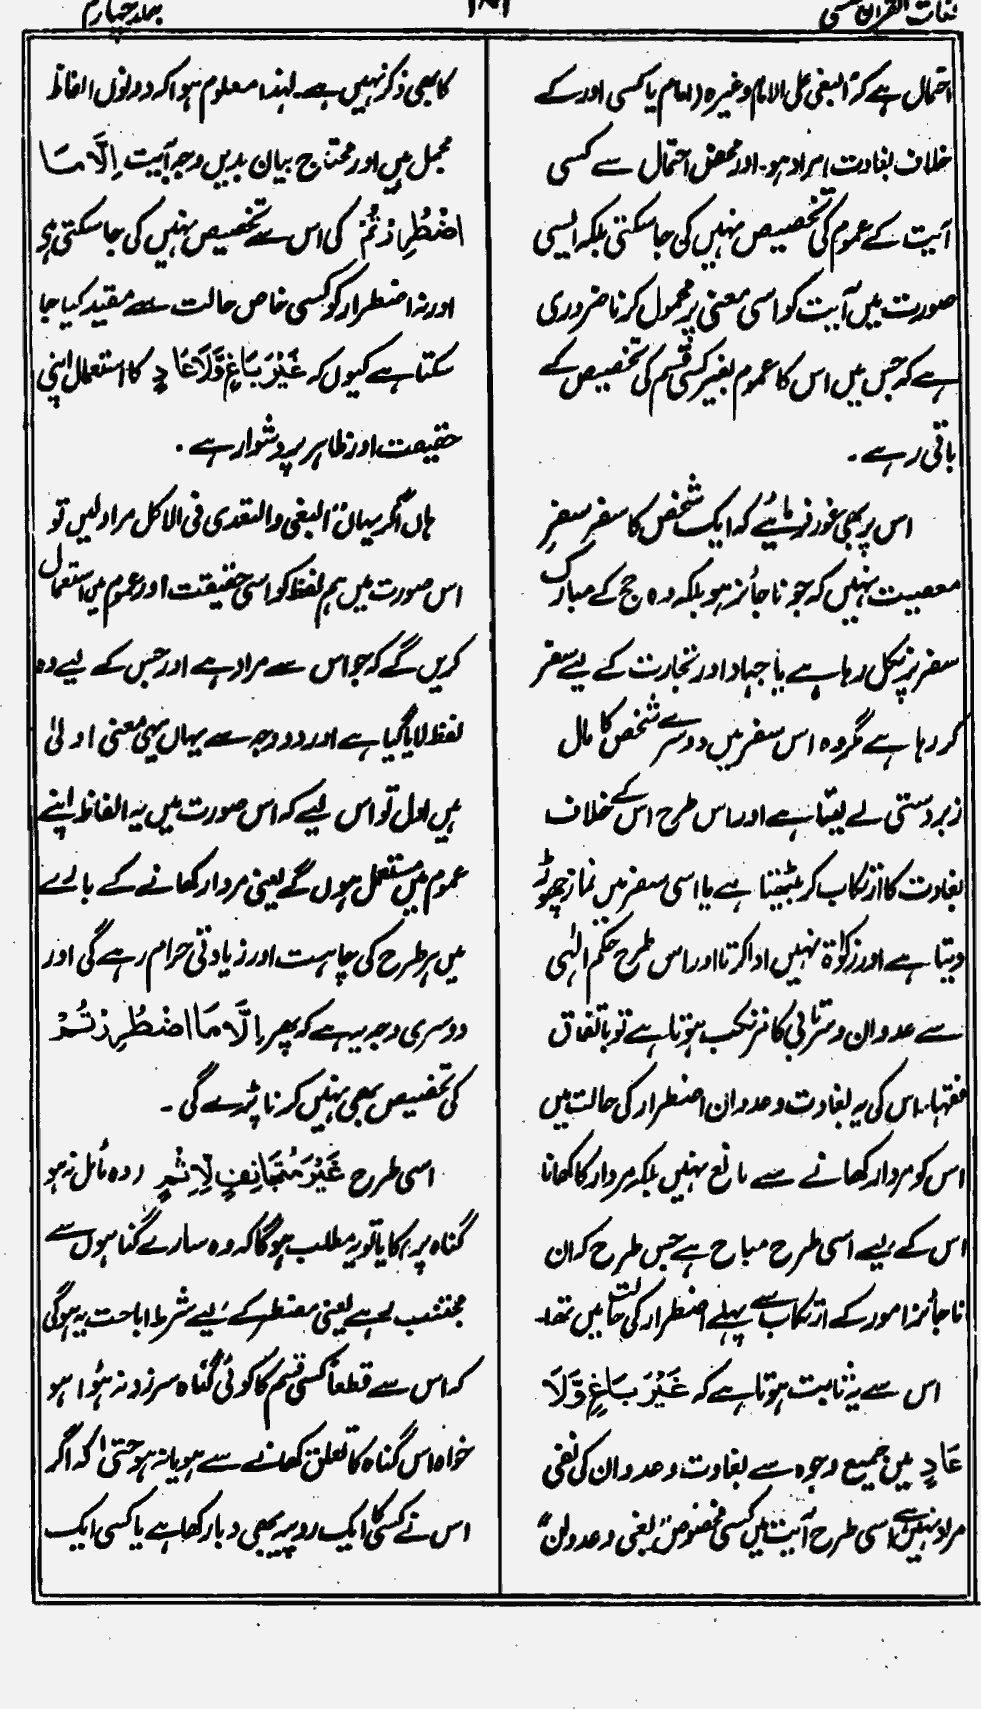 لغات القرآن
جلد چہارم
احتمال ہے کہ "البغی علی الامام وغیرہ (امام یا کسی اور کے
خلاف بغاوت) مراد ہو۔ اور محض احتمال سے کسی
آیت کے عموم کی تخصیص نہیں کی جاسکتی بلکہ ایسی
صورت میں آیت کو اسی معنی پر محمول کرنا ضروری
ہے کہ جس میں اس کا عموم بغیر کسی قسم کی تخصیص کے
باقی رہے۔
اس پر بھی غور فرمائیے کہ ایک شخص کا سفر سفرِ
معصیت نہیں کہ جو ناجائز ہو بلکہ وہ حج کے مبارک
سفر پر نکل رہا ہے یا جہاد اور تجارت کے لیے سفر
کر رہا ہے مگر وہ اس سفر میں دوسرے شخص کا مال
زبردستی لے لیتا ہے اور اس طرح اس کے خلاف
بغاوت کا ارتکاب کر بیٹھتا ہے یا اسی سفر میں نماز چھوڑ
دیتا ہے اور زکوٰۃ نہیں ادا کرتا اور اس طرح حکم الٰہی
سے عدوان و سرتابی کا مرتکب ہوتا ہے تو باتفاق
فقہاء اس کی یہ بغاوت و عدوان اضطرار کی حالت میں
اس کو مردار کھانے سے مانع نہیں بلکہ مردار کا کھانا
اس کے لیے اسی طرح مباح ہے جس طرح کہ ان
ناجائز امور کے ارتکاب سے پہلے اضطرار کی حالت میں تھا۔
اس سے یہ ثابت ہوتا ہے کہ غَیْرَ بَاغٍ وَّلَا
عَادٍ میں جمیع وجوہ سے بغاوت و عدوان کی نفی
مراد نہیں ہے اسی طرح آیت میں کسی مخصوص "بغی و عدوان"
کا بھی ذکر نہیں ہے۔ لہٰذا معلوم ہوا کہ دونوں الفاظ
مجمل ہیں اور محتاج بیان بدیں وجہ آیت اِلَّا مَا
اضْطُرِرْتُمْ کی اس سے تخصیص نہیں کی جا سکتی ہو
اور نہ اضطرار کو کسی خاص حالت سے مقید کیا جا
سکتا ہے کیوں کہ غَیْرَ بَاغٍ وَّلَا عَادٍ کا استعمال اپنی
حقیقت اور ظاہر پر دشوار ہے۔
ہاں اگر یہاں "البغی والتعدی فی الاکل مراد لیں تو
اس صورت میں ہم لفظ کو اسی حقیقت اور عموم میں استعمال
کریں گے کہ جو اس سے مراد ہے اور جس کے لیے وہ
لفظ لایا گیا ہے اور دو وجہ سے یہاں یہی معنی اولیٰ
ہیں اول تو اس لیے کہ اس صورت میں یہ الفاظ اپنے
عموم میں مستعمل ہوں گے یعنی مردار کھانے کے بارے
میں ہر طرح کی چاہت اور زیادتی حرام رہے گی اور
دوسری وجہ یہ ہے کہ پھر اِلَّا مَا اضْطُرِرْتُمْ
کی تخصیص بھی نہیں کرنا پڑے گی۔
اسی طرح غَیْرَ مُتَجَانِفٍ لِّاِثْمٍ (وہ مائل نہ ہو
گناہ پر) کا یا تو یہ مطلب ہوگا کہ وہ سارے گناہوں سے
مجتنب ہے یعنی مضطر کے لیے شرط اباحت یہ ہوگی
کہ اس سے قطعاً کسی قسم کا کوئی گناہ سرزد نہ ہوا ہو
خواہ اس گناہ کا تعلق کھانے سے ہو یا نہ ہو حتیٰ کہ اگر
اس نے کسی کا ایک روپیہ بھی دبا رکھا ہے یا کسی ایک